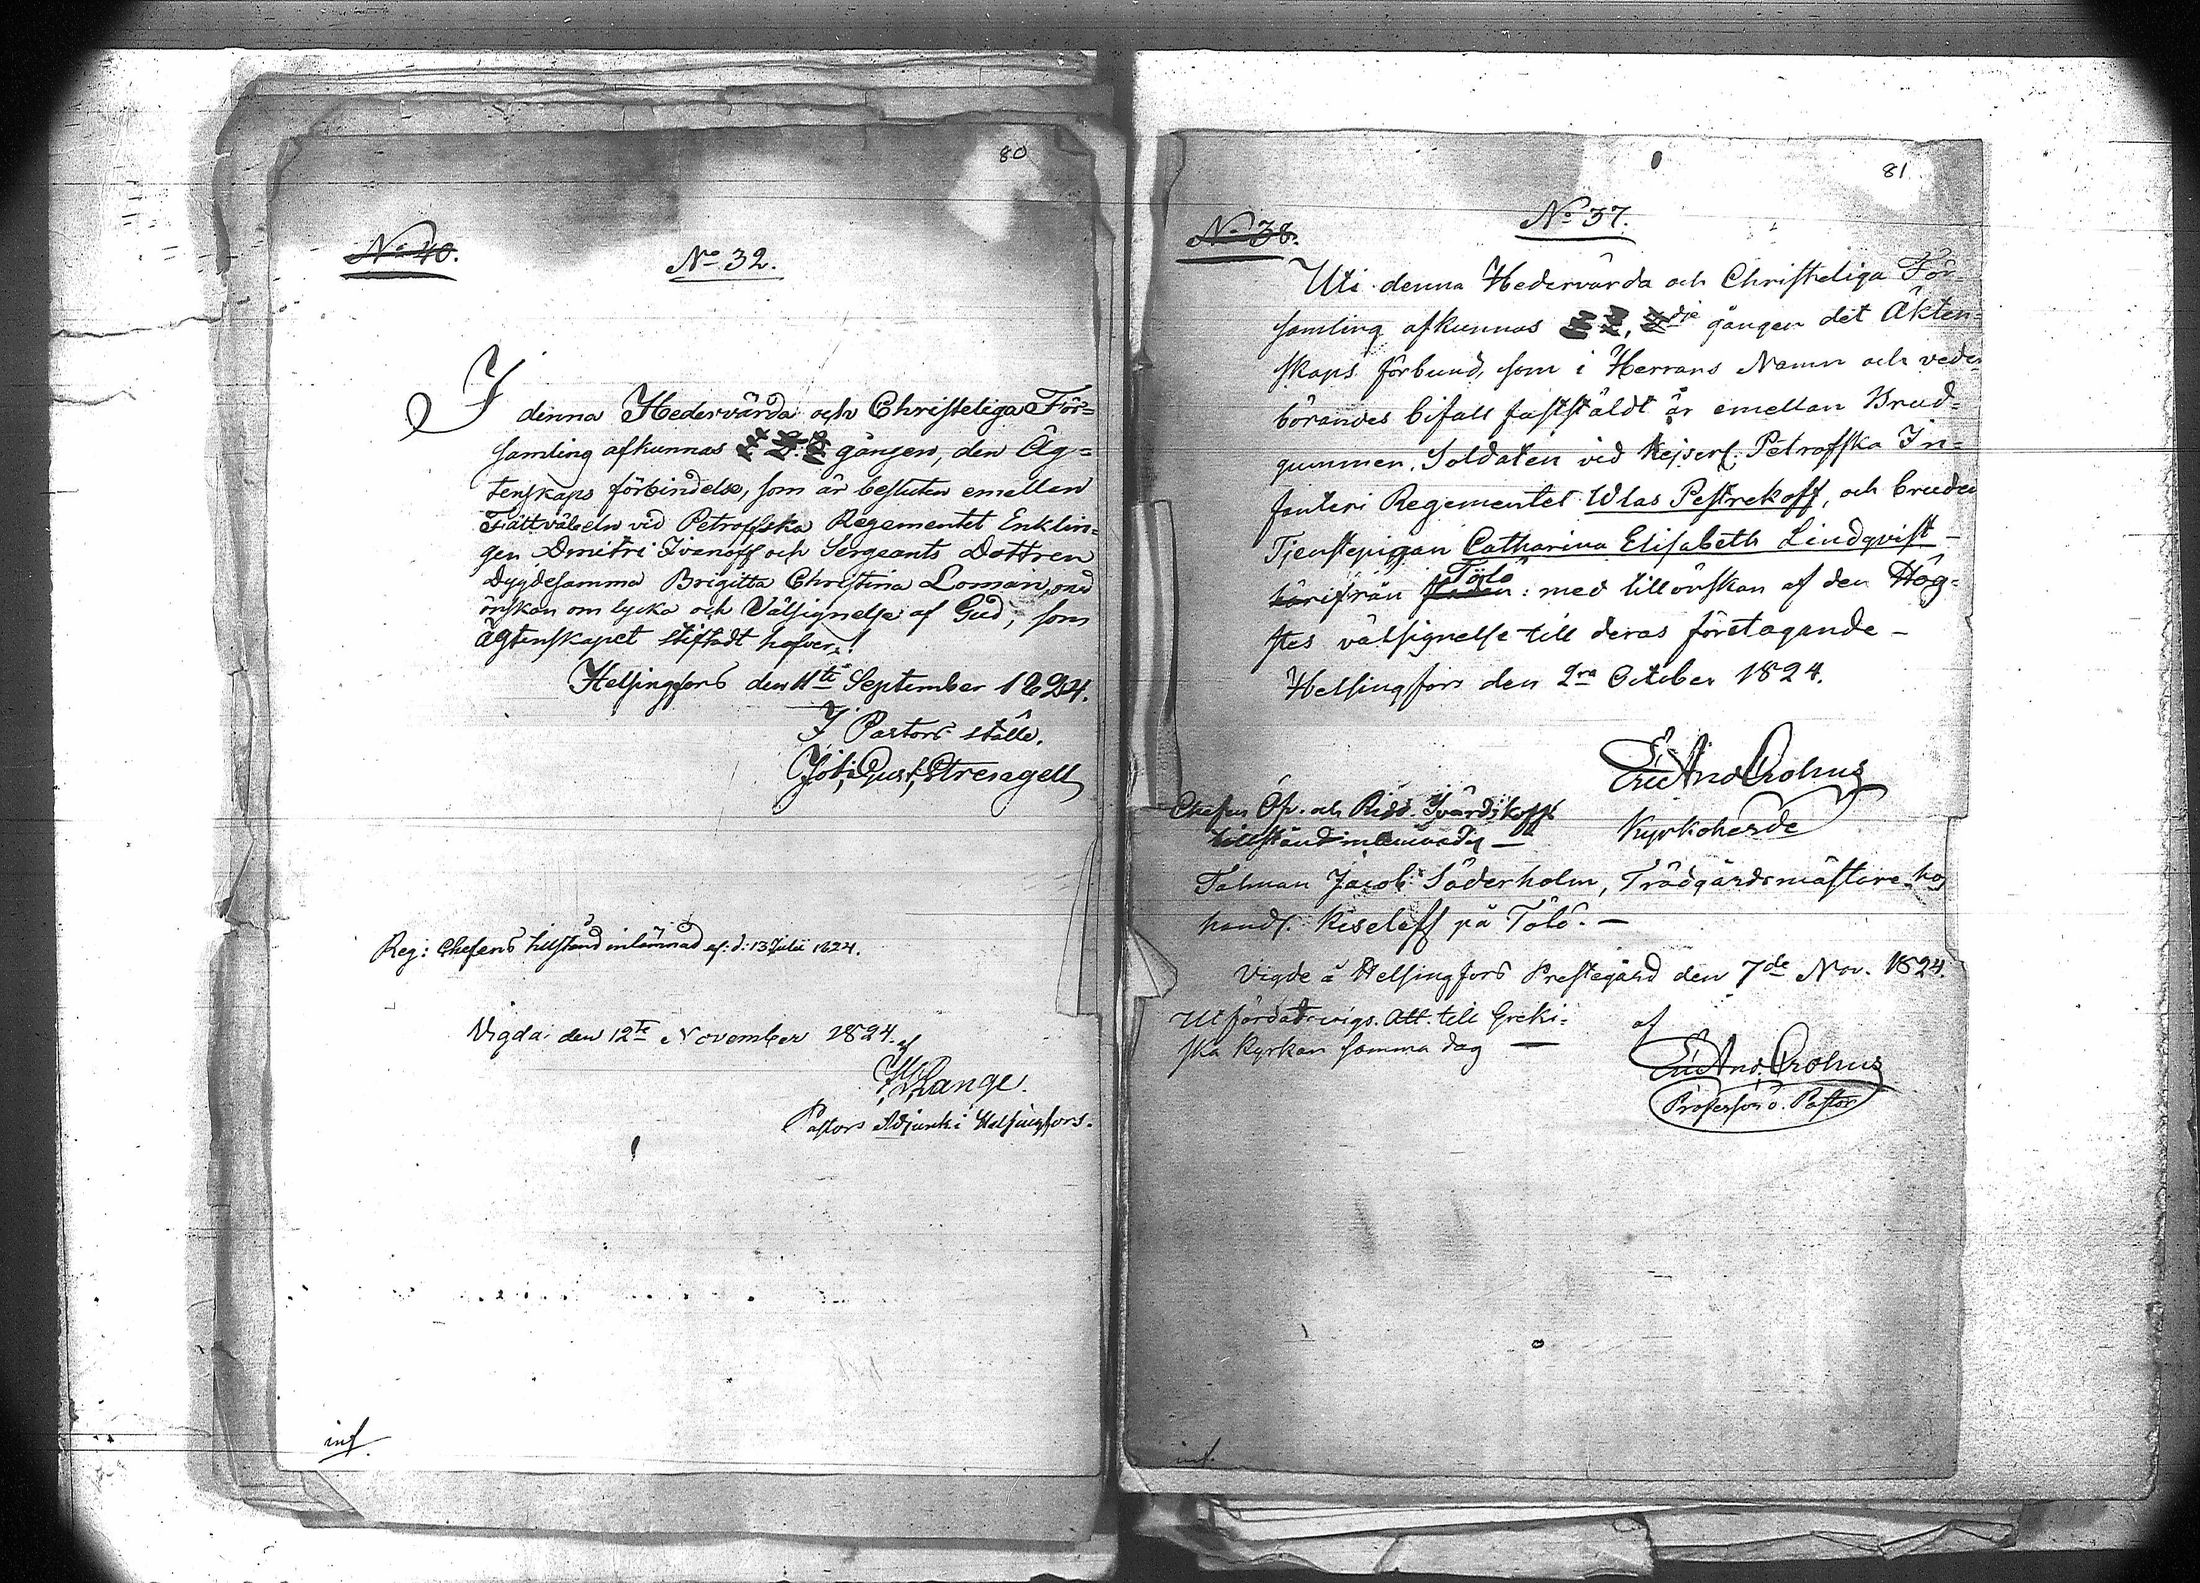 80
No 40.
No 32.
I denna Hedervärda och Christeliga För=
samling afkunnas 1. 2. 3 gången, den Äg=
tenskaps förbindelse, som är besluten emellan
Fältväbeln vid Petroffska Regementet Enklin=
gen Dmitri Ivanoff och Sergeants Dottren
Dygdesamma Brigitta Christina Loman, med
önskan om lycka och Välsignelse af Gud, som
Ägtenskapet stiftadt hafver!
Helsingfors den 11te September 1824.
I Pastors ställe.
Joh. Gust.
Reg: Chefens tillstånd inlämnad af: d: 13 Julii 1824.
Vigda den 12te November 1824. af
Lange.
Pastors Adjunkt i Helsingfors.
inf.
81
No 38.
No 37.
Uti denna Hedervärda och Christeliga För=
samling afkunnas 1 2, 3dje gången det Äkten=
skaps förbund, som i Herrans Namn och veder
börandes bifall fastställdt är emellan Brud=
gummen, Soldaten vid Kejserl: Petroffska In=
fanteri Regementet Wlas Pestrekoff, och bruden
Tjenstepigan Catharina Elisabeth Lindqvist -
härifrån Tölö staden: med tillönskan af den Hög=
stes välsignelse till deras företagande -
Helsingfors den 2ra October 1824.
Eric And Crohns
Kyrkoherde
Chefens Öf. och Ridd.
tillstånd inlemnadt —
Talman Jacob Söderholm, Trädgårdsmästare hos
handl. Kiseleff på Tölö. —
Vigde å Helsingfors Prestegård den 7de Nov. 1824.
Utfärdat vigs. Att. till Greki=
ska Kyrkan samma dag —
af
Eric And. Crohns
Professor o. Pastor
inf.